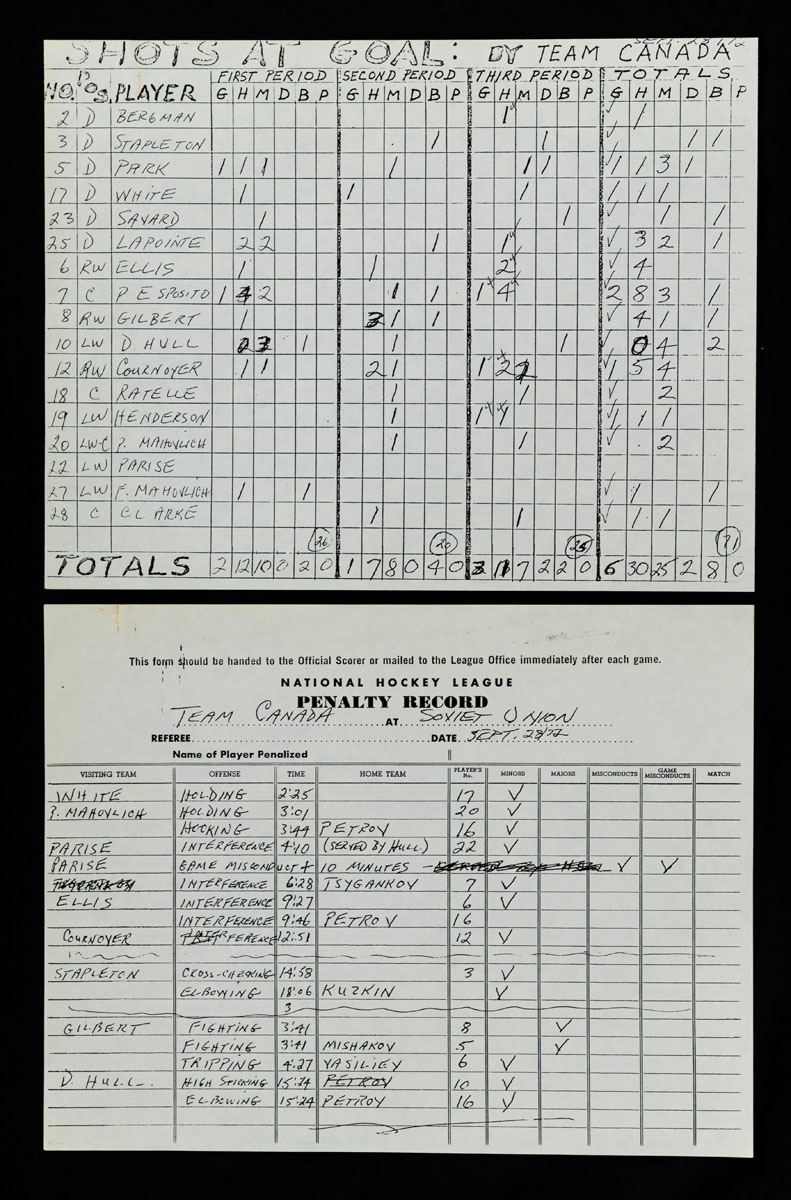 SHOTS AT GOAL: BY TEAM CANADA
FIRST PERIOD SECOND PERIOD THIRD PERIOD TOTALS
NO. POS. PLAYER G H M D B P G H M D B P G H M D B P G H M D B P
2 D BERGMAN 1 1
3 D STAPLETON 1 1 1 1
5 D PARK 1 1 1 1 1 1 1 1 3 1
17 D WHITE 1 1 1 1 1 1
23 D SAVARD 1 1 1 1
25 D LAPOINTE 2 2 1 1 3 2 1
6 RW ELLIS 1 1 2 4
7 C P ESPOSITO 1 4 2 1 1 1 4 2 8 3 1
8 RW GILBERT 1 3 1 1 4 1 1
10 LW D HULL 2 3 1 1 1 0 4 2
12 RW COURNOYER 1 1 2 1 1 2 2 1 5 4
18 C RATELLE 1 1 2
19 LW HENDERSON 1 1 1 1 1 1
20 LW-C P. MAHOVLICH 1 1 2
22 LW PARISE
27 LW F. MAHOVLICH 1 1 1 1
28 C CLARKE 1 1 1 1
26 20 25 71
TOTALS 2 12 10 0 2 0 1 7 8 0 4 0 3 11 7 2 2 0 6 30 25 2 8 0
This form should be handed to the Official Scorer or mailed to the League Office immediately after each game.
NATIONAL HOCKEY LEAGUE
PENALTY RECORD
TEAM CANADA AT SOVIET UNION
REFEREE DATE SEPT. 28/72
Name of Player Penalized
VISITING TEAM OFFENSE TIME HOME TEAM PLAYER'S No. MINORS MAJORS MISCONDUCTS GAME MISCONDUCTS MATCH
WHITE HOLDING 2:25 17 ✓
P. MAHOVLICH HOLDING 3:01 20 ✓
HOOKING 3:44 PETROV 16 ✓
PARISE INTERFERENCE 4:10 (SERVED BY HULL) 22 ✓
PARISE GAME MISCONDUCT + 10 MINUTES - ✓ ✓
INTERFERENCE 6:28 TSYGANKOV 7 ✓
ELLIS INTERFERENCE 9:27 6 ✓
INTERFERENCE 9:46 PETROV 16
COURNOYER INTERFERENCE 12:51 12 ✓
STAPLETON CROSS-CHECKING 14:58 3 ✓
ELBOWING 18:06 KUZKIN ✓
3
GILBERT FIGHTING 3:41 8 ✓
FIGHTING 3:41 MISHAKOV 5 ✓
TRIPPING 4:27 VASILIEV 6 ✓
D. HULL HIGH STICKING 15:24 PETROV 10 ✓
ELBOWING 15:24 PETROV 16 ✓